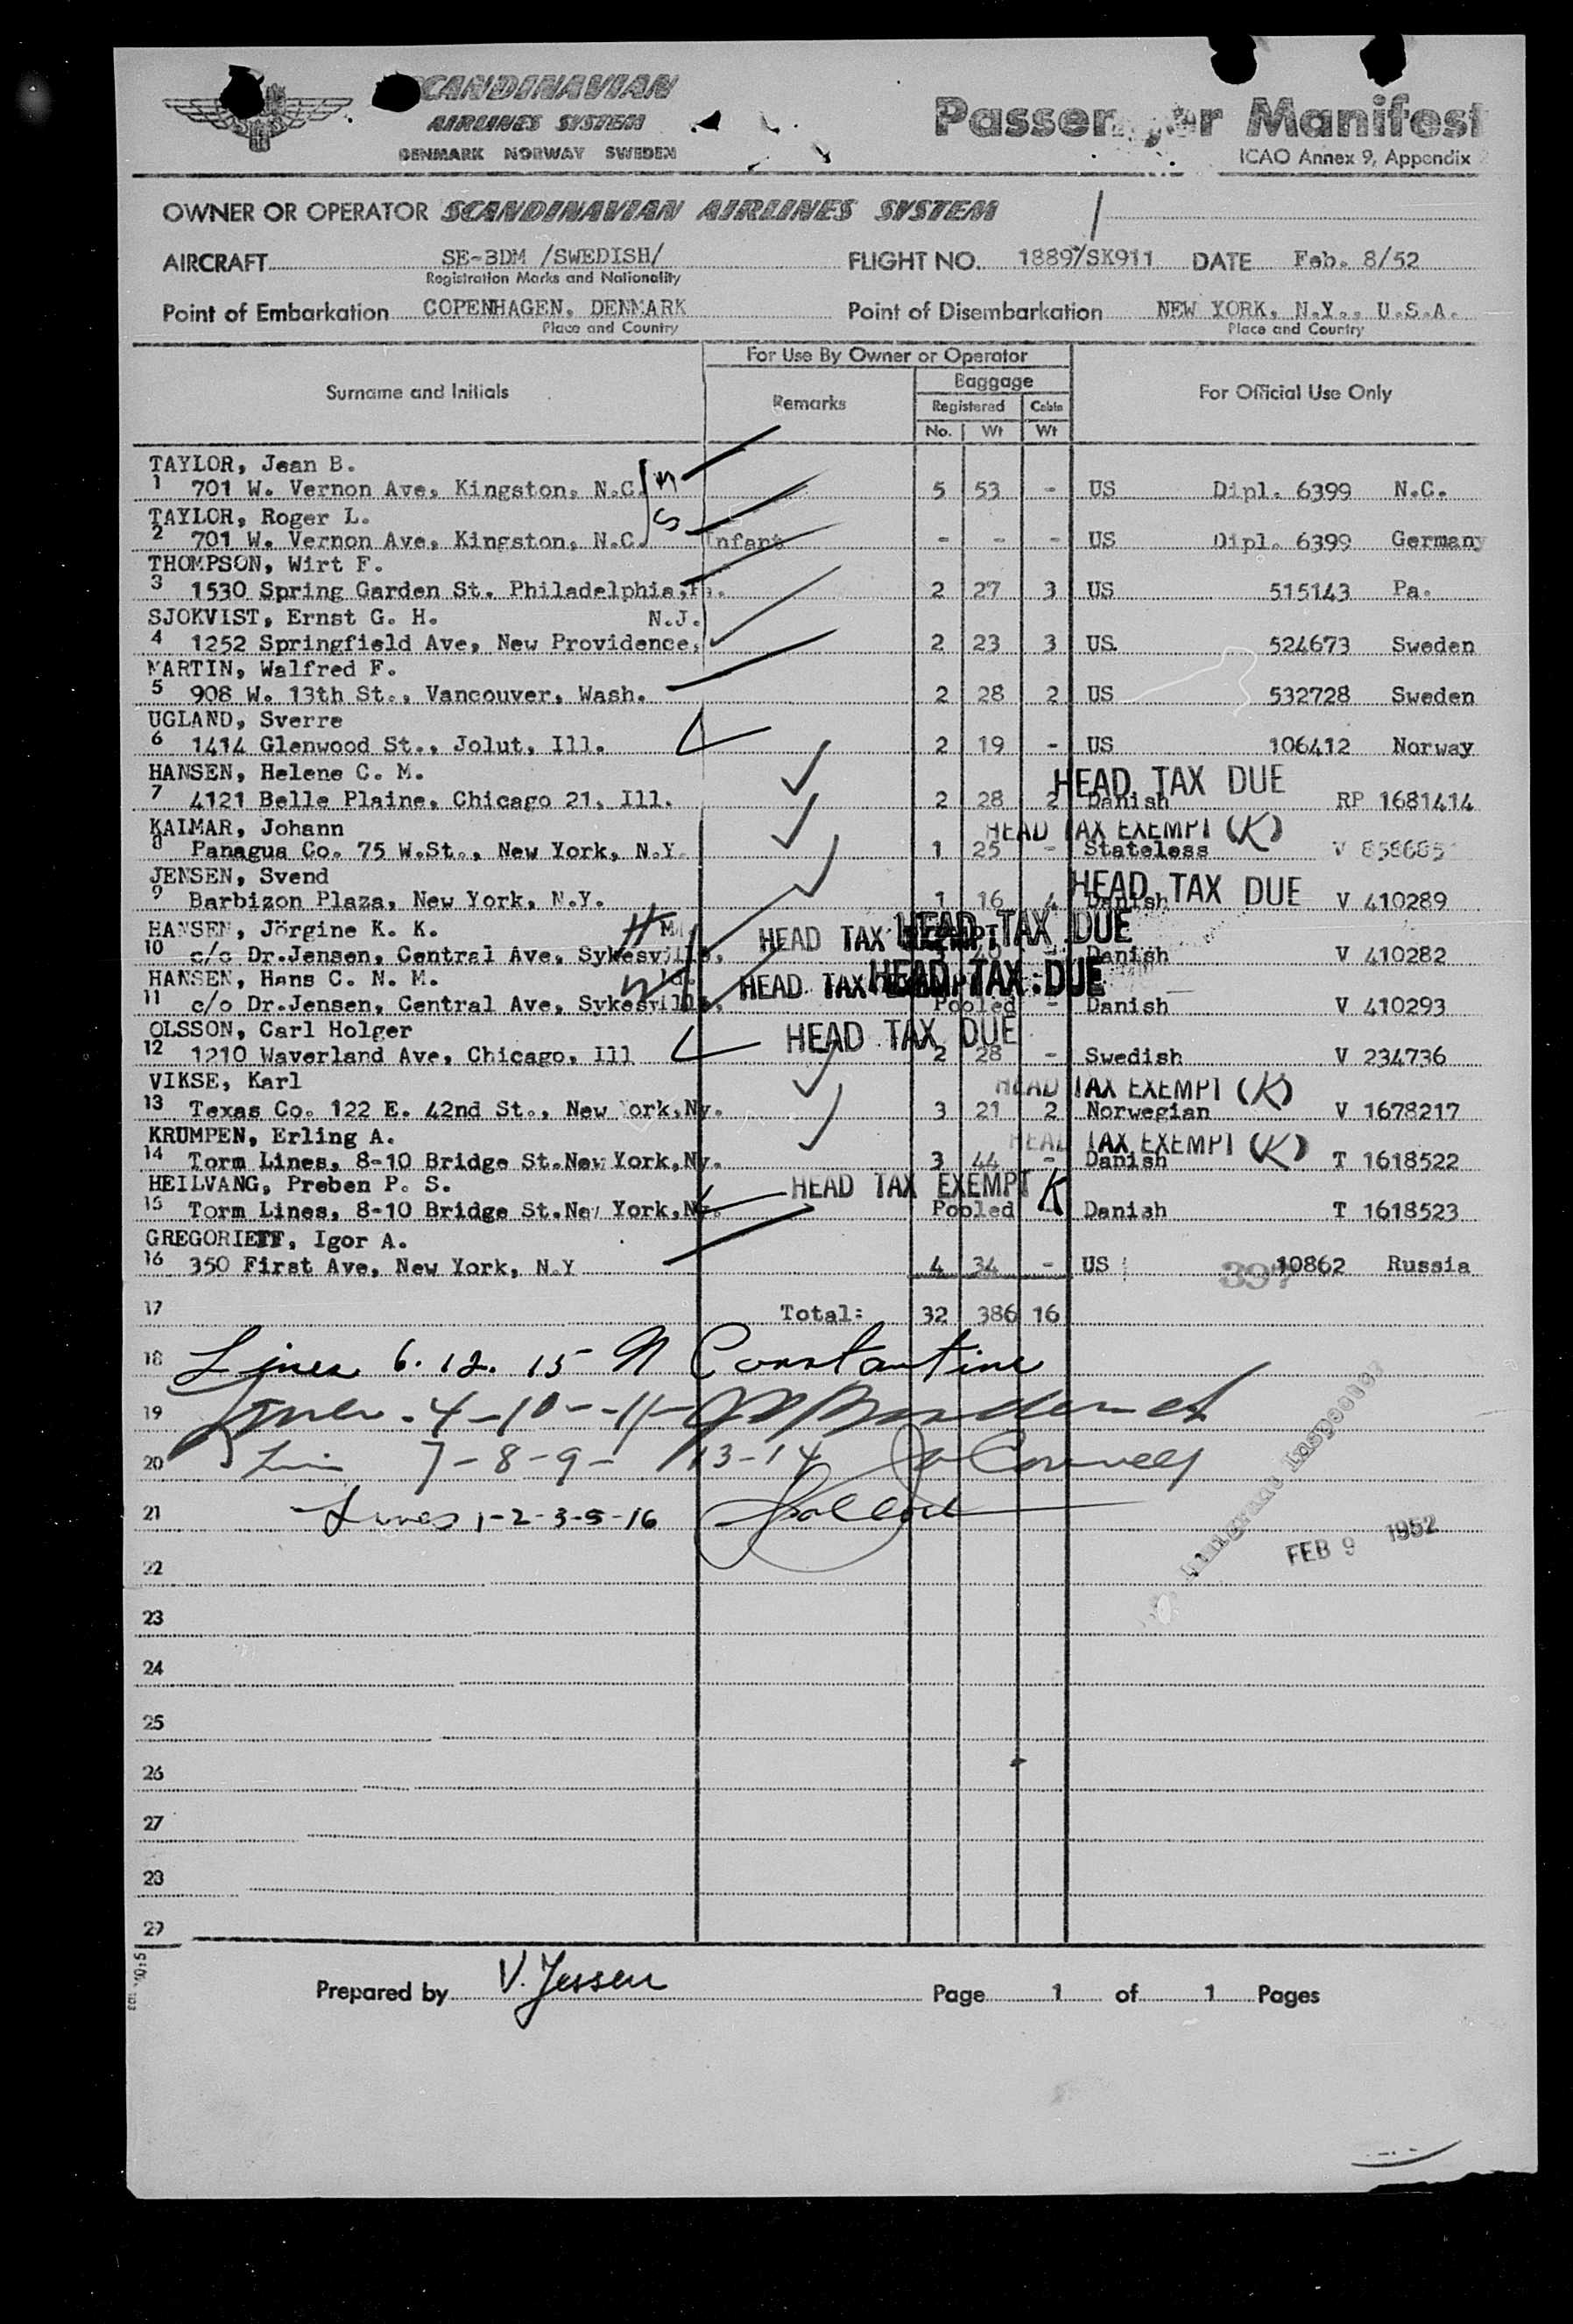 SCANDINAVIAN
AIRLINES SYSTEM
DENMARK NORWAY SWEDEN
Passenger Manifest
ICAO Annex 9, Appendix 2
OWNER OR OPERATOR SCANDINAVIAN AIRLINES SYSTEM
AIRCRAFT SE-BDM /SWEDISH/ FLIGHT NO. 1889/SK911 DATE Feb. 8/52
Registration Marks and Nationality
Point of Embarkation COPENHAGEN, DENMARK Point of Disembarkation NEW YORK, N.Y., U.S.A.
Place and Country Place and Country
For Use By Owner or Operator
Surname and Initials Remarks Baggage For Official Use Only
Registered Cabin
No. Wt Wt
TAYLOR, Jean B.
1 701 W. Vernon Ave, Kingston, N.C. 5 53 - US Dipl. 6399 N.C.
TAYLOR, Roger L.
2 701 W. Vernon Ave, Kingston, N.C. Infant - - - US Dipl. 6399 Germany
THOMPSON, Wirt F.
3 1530 Spring Garden St. Philadelphia, Pa. 2 27 3 US 515143 Pa.
SJOKVIST, Ernst G. H. N.J.
4 1252 Springfield Ave, New Providence, 2 23 3 US. 524673 Sweden
MARTIN, Walfred F.
5 908 W. 13th St., Vancouver, Wash. 2 28 2 US 532728 Sweden
UGLAND, Sverre
6 1414 Glenwood St., Jolut, Ill. 2 19 - US 106412 Norway
HANSEN, Helene C. M. HEAD TAX DUE
7 4121 Belle Plaine, Chicago 21, Ill. 2 28 2 Danish RP 1681414
KAIMAR, Johann HEAD TAX EXEMPT (K)
8 Panagua Co. 75 W.St., New York, N.Y. 1 25 - Stateless V
JENSEN, Svend HEAD TAX DUE
9 Barbizon Plaza, New York, N.Y. 1 16 4 Danish V 410289
HANSEN, Jörgine K. K. HEAD TAX EXEMPT HEAD TAX DUE
10 c/o Dr.Jensen, Central Ave, Sykesville, Danish V 410282
HANSEN, Hans C. N. M. HEAD TAX EXEMPT HEAD TAX DUE
11 c/o Dr.Jensen, Central Ave, Sykesville, Pooled - Danish V 410293
OLSSON, Carl Holger HEAD TAX DUE
12 1210 Waverland Ave, Chicago, Ill 2 28 - Swedish V 234736
VIKSE, Karl HEAD TAX EXEMPT (K)
13 Texas Co. 122 E. 42nd St., New York,Ny. 3 21 2 Norwegian V 1678217
KRUMPEN, Erling A. HEAD TAX EXEMPT (K)
14 Torm Lines, 8-10 Bridge St.New York,Ny. 3 44 - Danish T 1618522
HEILVANG, Preben P. S. HEAD TAX EXEMPT K
15 Torm Lines, 8-10 Bridge St.New York,Ny. Pooled - Danish T 1618523
GREGORIEFF, Igor A.
16 350 First Ave, New York, N.Y 4 34 - US 10862 Russia
17 Total: 32 386 16
18 Lines 6. 12. 15 N Constantine
19 Lines - 4-10--11-
20 7-8-9- 13-14
21 Lines 1-2-3-5-16
Immigrant Inspector
FEB 9 1952
22
23
24
25
26
27
28
29
Prepared by V. Jessen Page 1 of 1 Pages